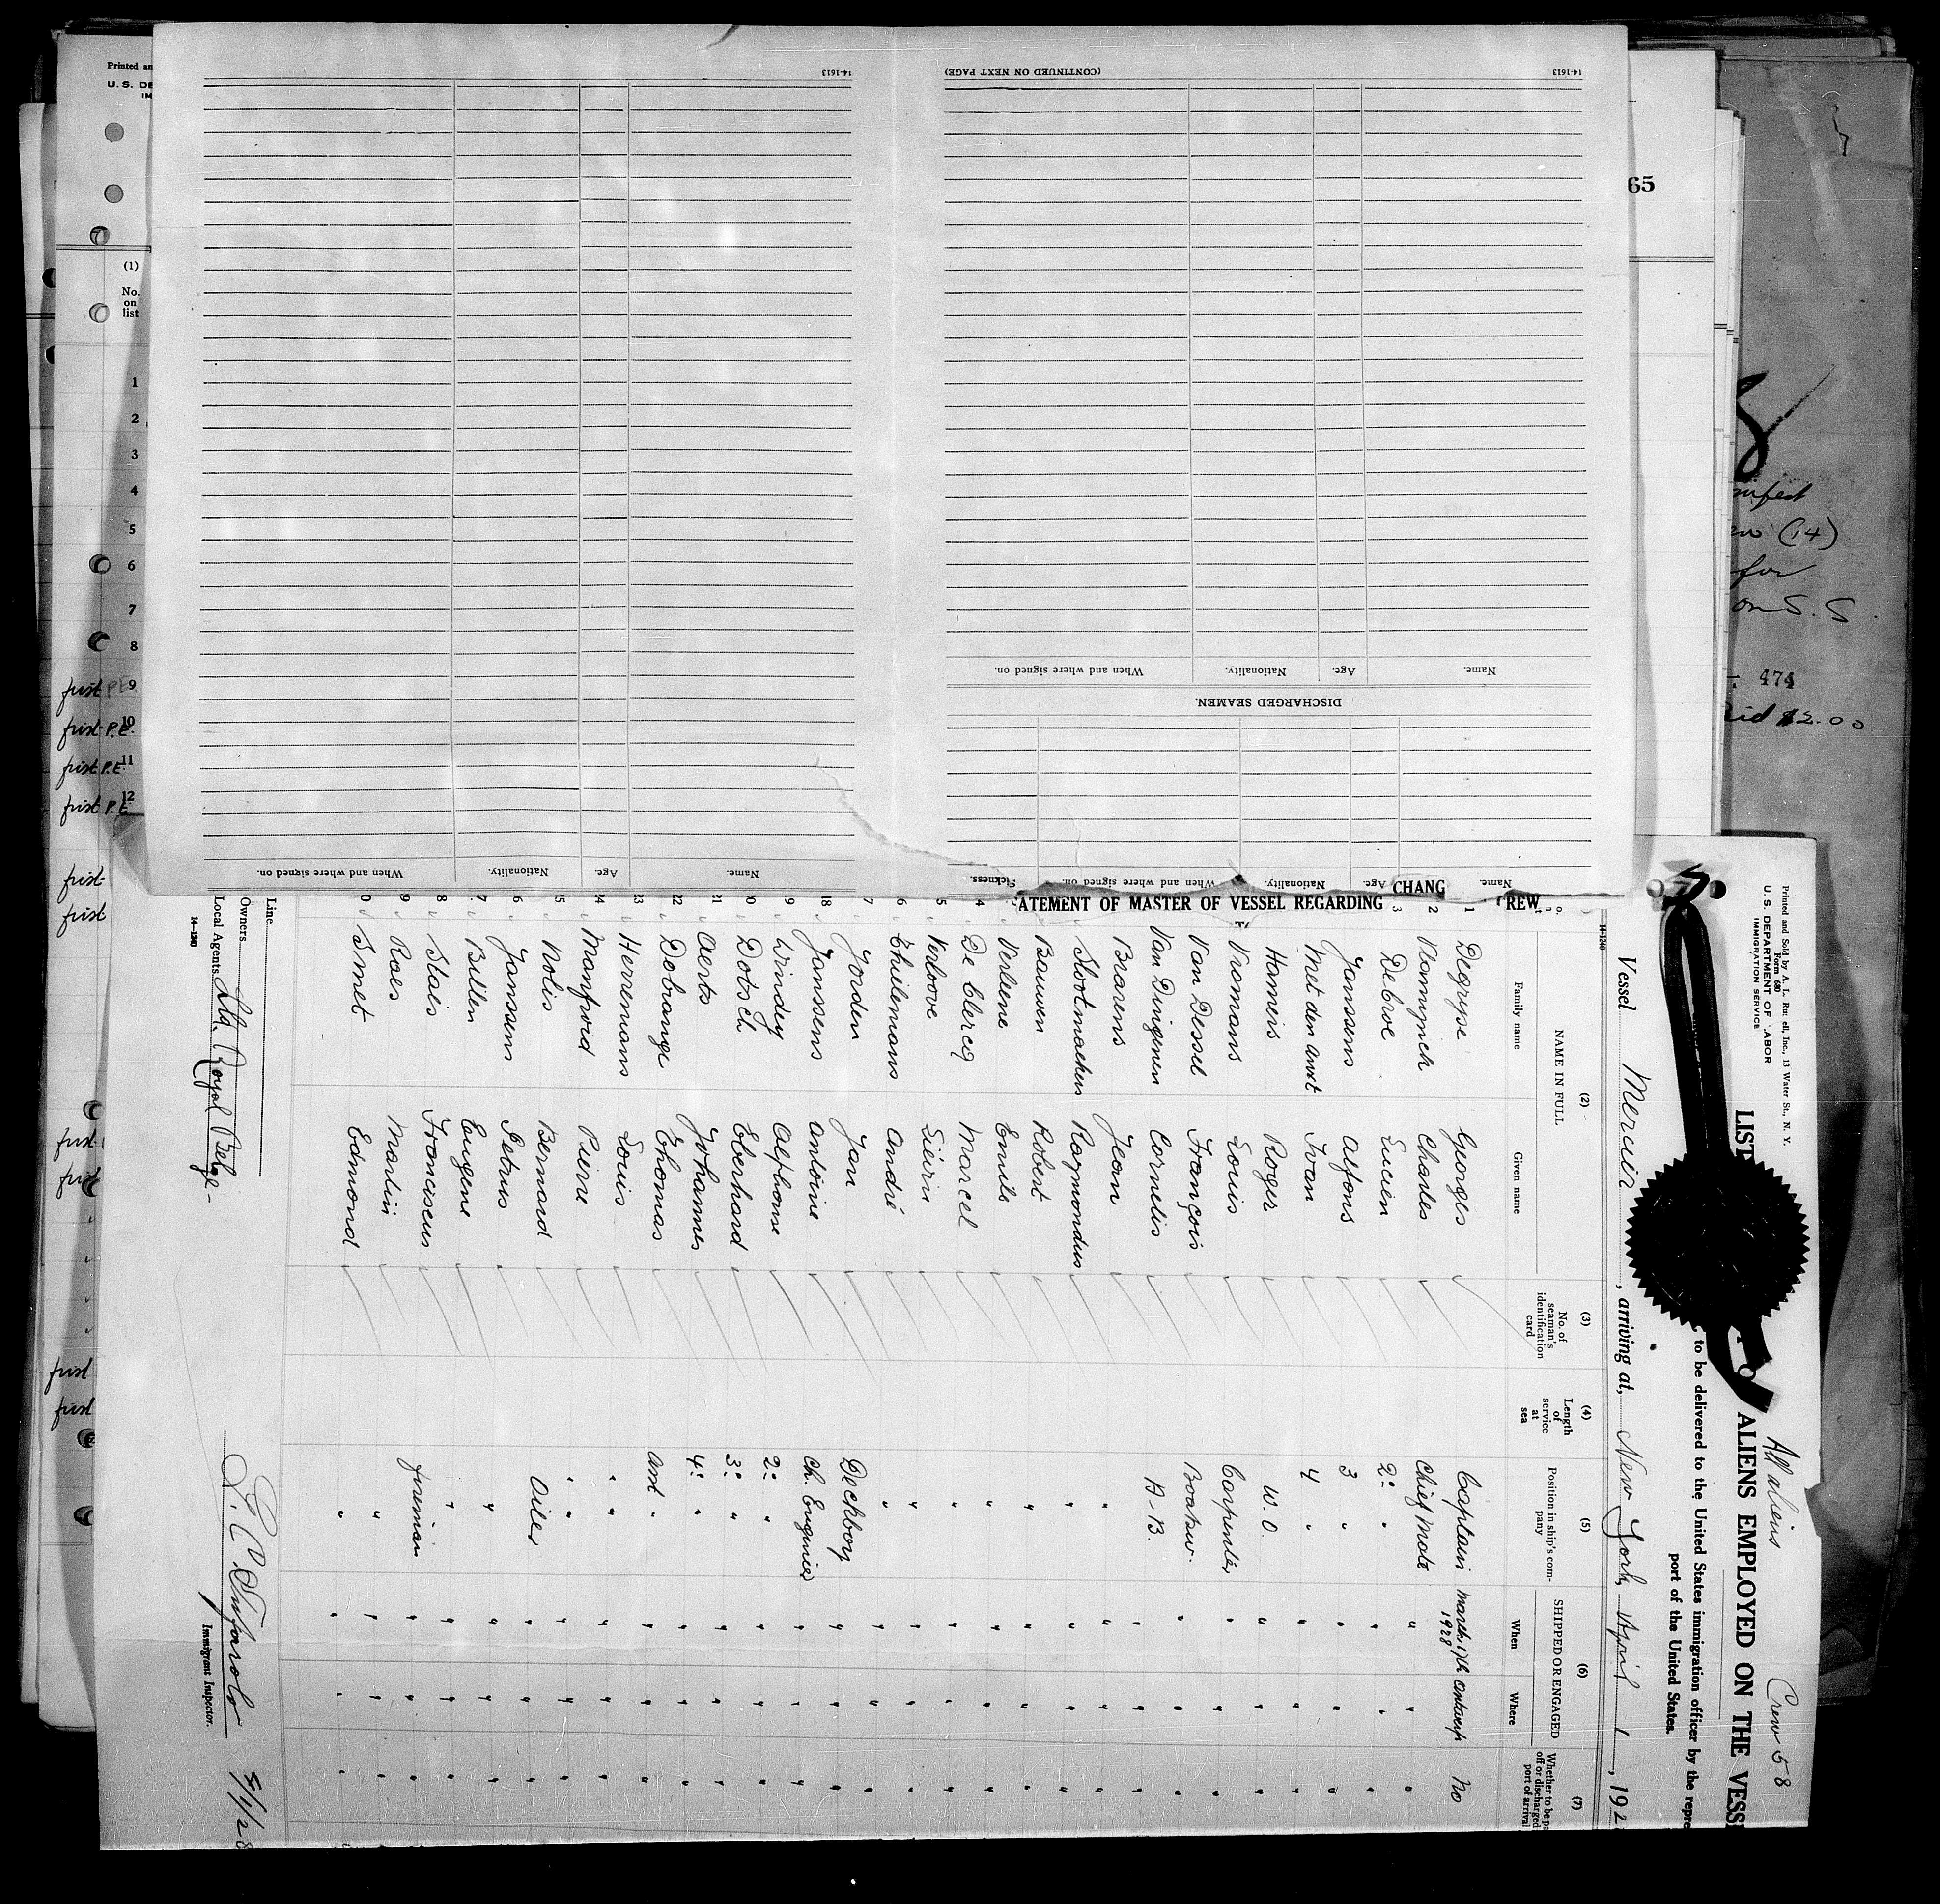 Printed and Sold by A. L. Russell, Inc., 13 Water St., N. Y.
Form 680
U. S. DEPARTMENT OF LABOR
IMMIGRATION SERVICE
All aliens
Crew 58
LIST
ALIENS EMPLOYED ON THE VESS
to be delivered to the United States immigration officer by the repre
port of the United States.
Vessel Mercier, arriving at, New York, April 1, 192
14-1240
(2)
NAME IN FULL
Family name Given name
(3)
No. of seaman's identification card
(4)
Length of service at sea
(5)
Position in ship's company
(6)
SHIPPED OR ENGAGED
When Where
(7)
Whether to be
off or discharged
port of arrival
1 Degryse Georges Captain March 17th 1928 Antwerp No
2 Vlamynck Charles Chief Mate " " "
3 Debroe Lucien 2° " " " "
Janssens Alfons 3 " " " "
Met den Anxt Ivan 4 " " " "
Hameis Roger W.O. " " "
Vramans Louis Carpenter " " "
Van Dessel François Boatsw. " " "
Van Dingenen Cornelis A-B. " " "
Brarens Jean " " " "
Slootmaekers Raymondus " " " "
Bauwen Robert " " " "
Verleene Emile " " " "
4 De Clercq Marcel " " " "
5 Verbove Liévin " " " "
6 Thielemans André " " " "
7 Jorden Jan Deckboy " " "
18 Janssens Antoine Ch. Engineer " " "
9 Windey Alphonse 2° " " " "
0 Dotsch Eberhard 3° " " " "
21 Aerts Johannes 4° " " " "
22 Dobrange Thomas Asst " " " "
23 Herremans Louis " " " "
24 Manfroid Pierre " " " "
25 Nolis Bernard Oiler " " "
6 Janssens Petrus " " " "
7 Billen Eugene " " " "
8 Stais Franciscus fireman " " "
9 Raes Martin " " " "
0 Smet Edmond " " " "
Line
Owners
Local Agents Lld. Royal Belge-
14-1240
Immigrant Inspector.
4/1/28
ATEMENT OF MASTER OF VESSEL REGARDING CHANG REW
Name. Age. Nationality. When and where signed on. Sickness.
DISCHARGED SEAMEN.
Name. Age. Nationality. When and where signed on.
(CONTINUED ON NEXT PAGE)
14-1613
Name. Age. Nationality. When and where signed on.
14-1613
Printed an
U. S. DE
IM
(1)
No. on list
1
2
3
4
5
6
7
8
first P.E. 9
first P.E. 10
first P.E. 11
first P.E. 12
first
first
first
first
first
first
65
(14)
for
on S. S.
474
$2.00